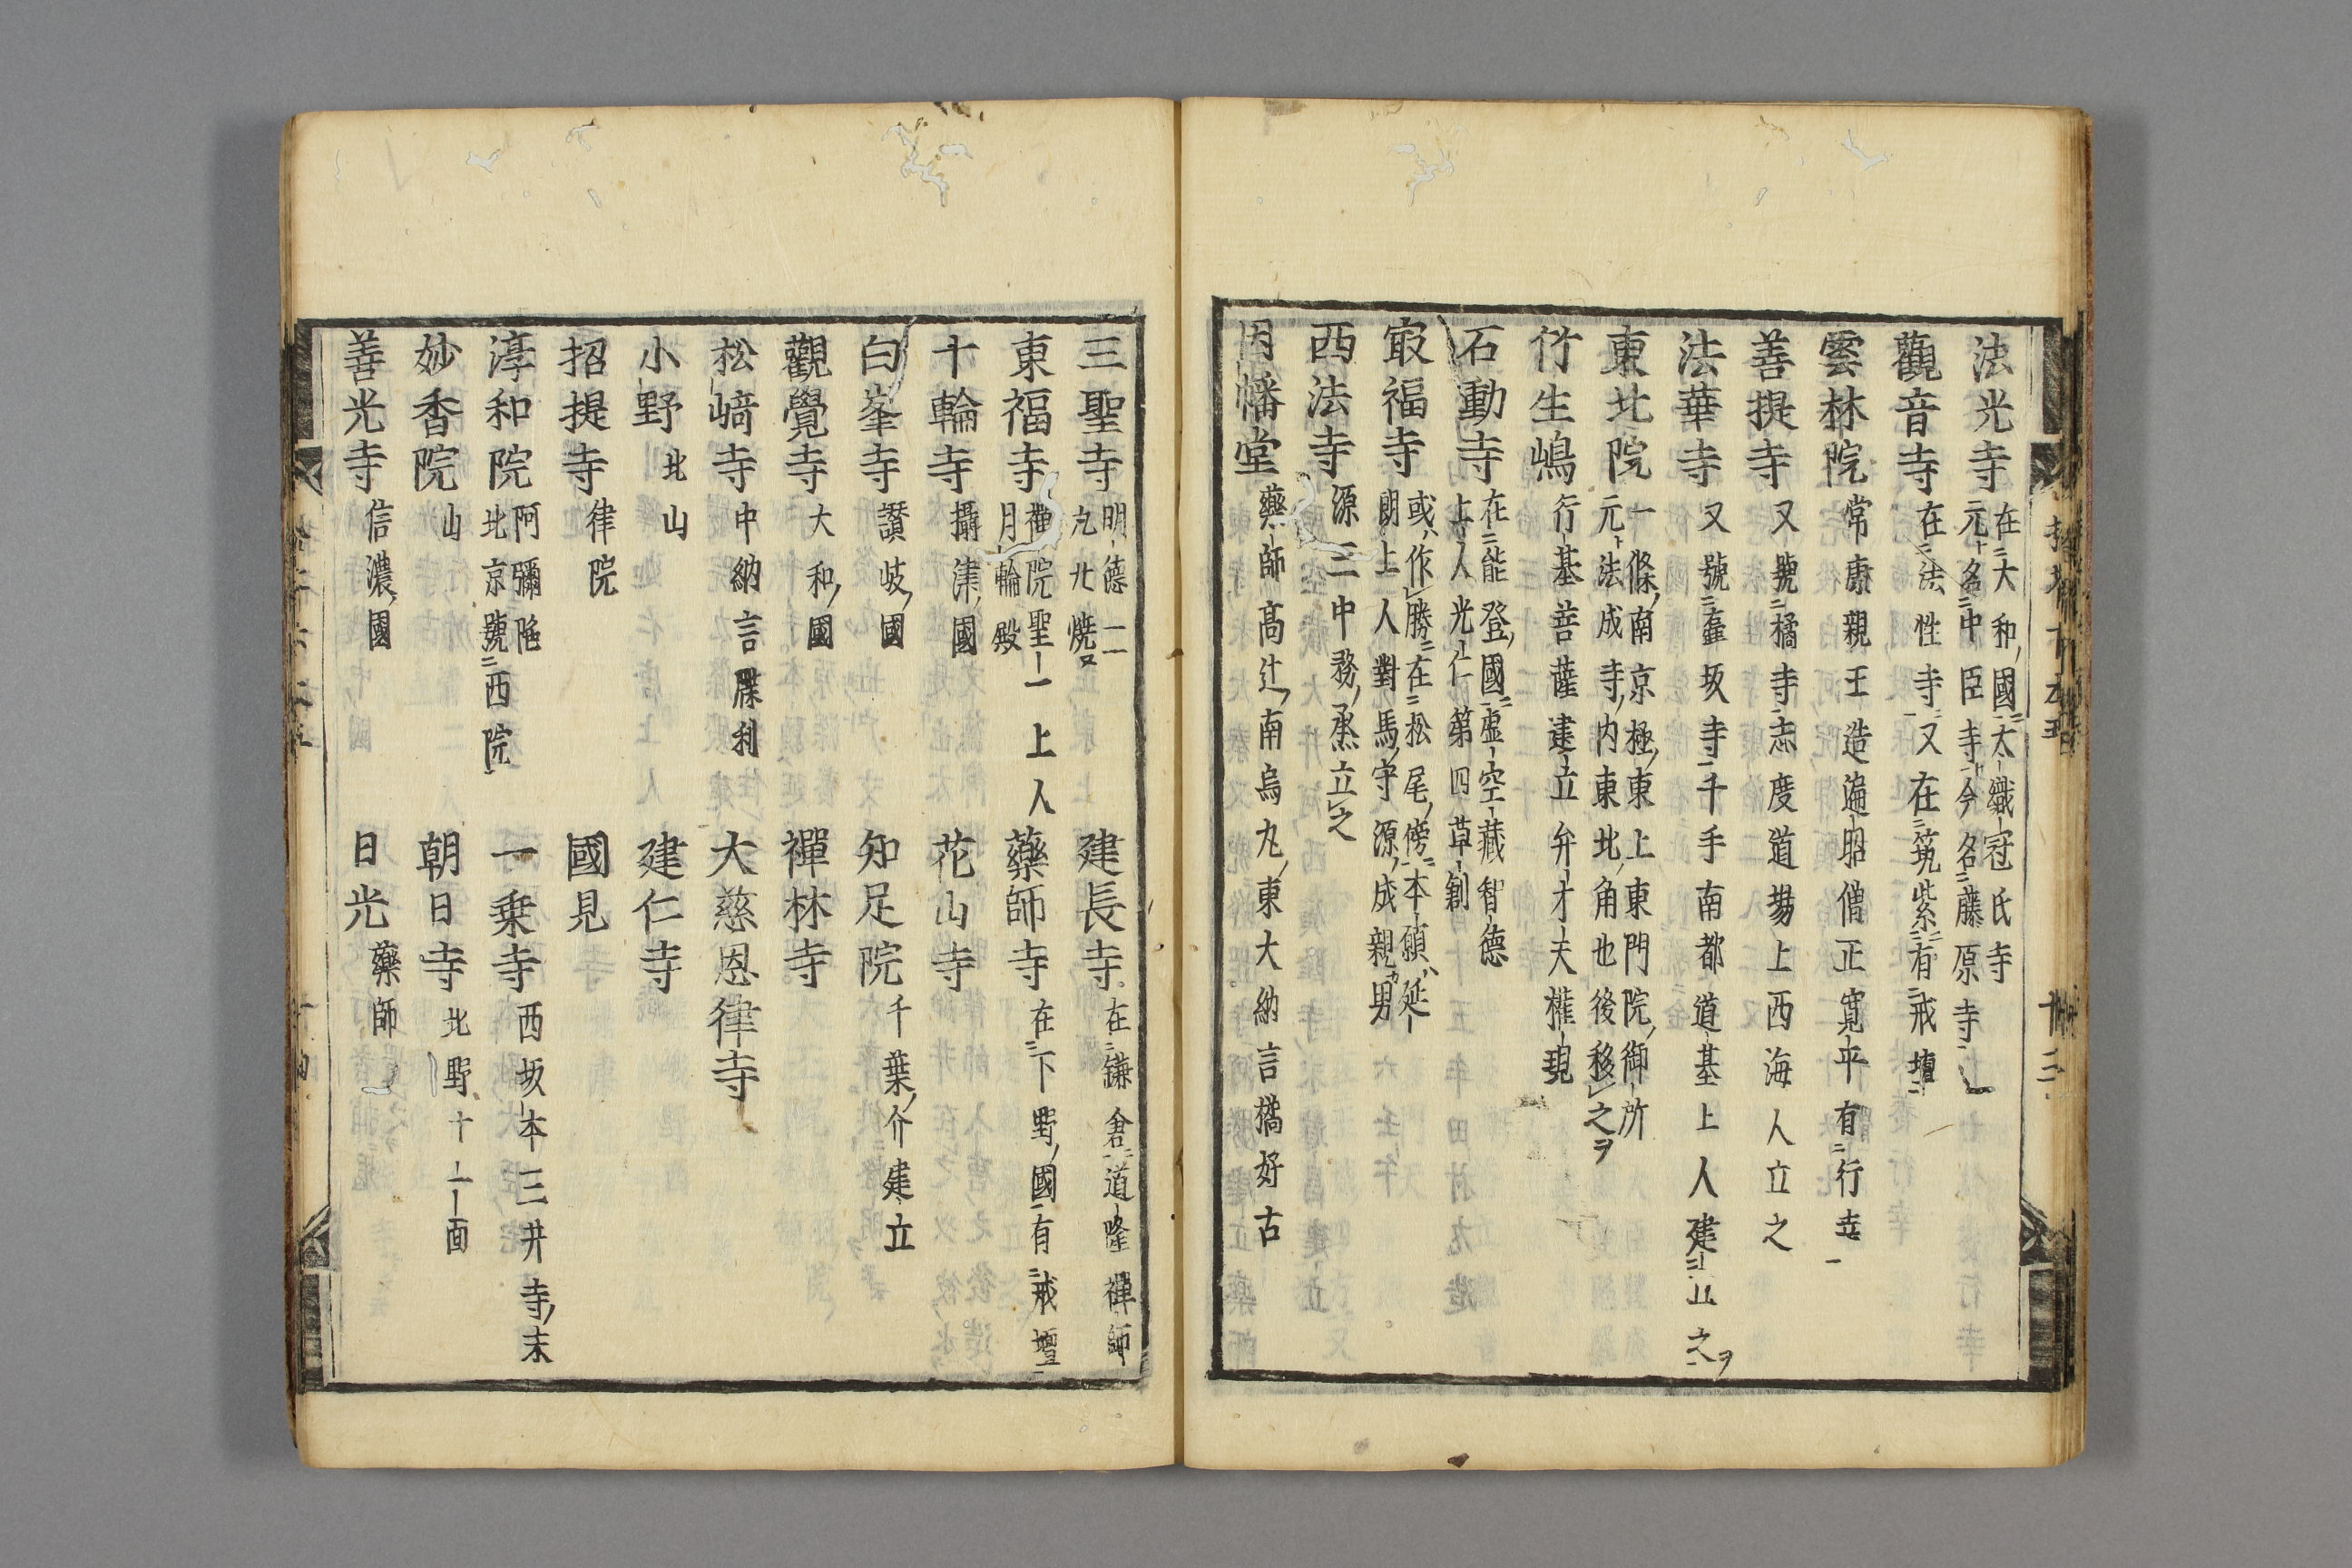 法光寺 在大和國大織冠氏寺
元名中臣寺今名藤原寺
觀音寺 在法性寺又在筑紫有戒壇
雲林院 常康親王造遍昭僧正寛平有行幸
善提寺 又號橘寺志度道場上西海人立之
法華寺 又號蓋坂寺千手南都道基上人建立之ヲ
東北院 一條南京極東上東門院御所
元法成寺内東北角也後移之ヲ
竹生嶋 行基菩薩建立弁才天權現
石動寺 在能登國虚空藏智德
上人光仁第四草創
㝡福寺 或ハ作勝在松尾傍本願ハ延
朗上人對馬守源成親カ男
西法寺 源三中務烝立之
因幡堂 藥師高辻南烏丸東大納言橘好古
三聖寺 明德二二
九北燒又
建長寺 在鎌倉道隆禪師
東福寺 禪院聖一上人
月輪殿
藥師寺 在下野國有戒壇
十輪寺 攝津國
花山寺
白峯寺 讃岐國
知足院 千葉介建立
觀覺寺 大和國
禪林寺
松﨑寺 中納言𦞂利
大慈恩律寺
小野 北山
建仁寺
招提寺 律院
國見
淳和院 阿彌陀
北京號西院
一乗寺 西坂本三井寺末
妙香院 山
朝日寺 北野十一面
善光寺 信濃國
日光 藥師